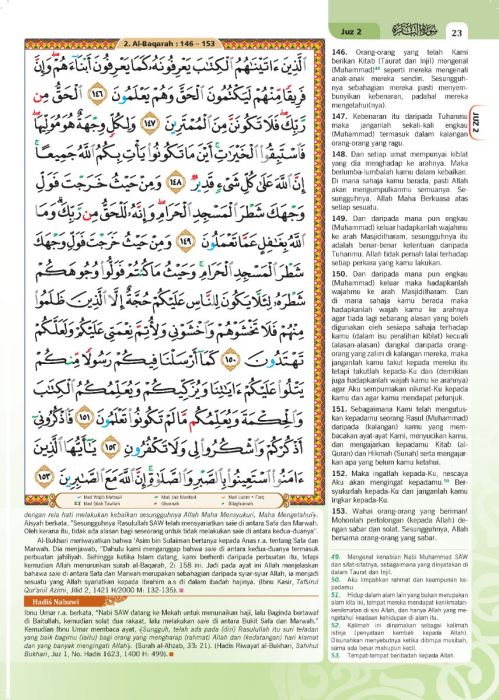 Juz 2
سورة البقرة
23
2. Al-Baqarah : 146 – 153
الَّذِينَ ءَاتَيْنَٰهُمُ الْكِتَٰبَ يَعْرِفُونَهُۥ كَمَا يَعْرِفُونَ أَبْنَآءَهُمْ وَإِنَّ
فَرِيقًا مِّنْهُمْ لَيَكْتُمُونَ الْحَقَّ وَهُمْ يَعْلَمُونَ ١٤٦ الْحَقُّ مِن
رَّبِّكَ فَلَا تَكُونَنَّ مِنَ الْمُمْتَرِينَ ١٤٧ وَلِكُلٍّ وِجْهَةٌ هُوَ مُوَلِّيهَا
فَاسْتَبِقُوا الْخَيْرَٰتِ أَيْنَ مَا تَكُونُوا يَأْتِ بِكُمُ اللَّهُ جَمِيعًا
إِنَّ اللَّهَ عَلَىٰ كُلِّ شَىْءٍ قَدِيرٌ ١٤٨ وَمِنْ حَيْثُ خَرَجْتَ فَوَلِّ
وَجْهَكَ شَطْرَ الْمَسْجِدِ الْحَرَامِ وَإِنَّهُۥ لَلْحَقُّ مِن رَّبِّكَ وَمَا
اللَّهُ بِغَٰفِلٍ عَمَّا تَعْمَلُونَ ١٤٩ وَمِنْ حَيْثُ خَرَجْتَ فَوَلِّ وَجْهَكَ
شَطْرَ الْمَسْجِدِ الْحَرَامِ وَحَيْثُ مَا كُنتُمْ فَوَلُّوا وُجُوهَكُمْ
شَطْرَهُۥ لِئَلَّا يَكُونَ لِلنَّاسِ عَلَيْكُمْ حُجَّةٌ إِلَّا الَّذِينَ ظَلَمُوا
مِنْهُمْ فَلَا تَخْشَوْهُمْ وَاخْشَوْنِى وَلِأُتِمَّ نِعْمَتِى عَلَيْكُمْ وَلَعَلَّكُمْ
تَهْتَدُونَ ١٥٠ كَمَآ أَرْسَلْنَا فِيكُمْ رَسُولًا مِّنكُمْ
يَتْلُوا عَلَيْكُمْ ءَايَٰتِنَا وَيُزَكِّيكُمْ وَيُعَلِّمُكُمُ الْكِتَٰبَ
وَالْحِكْمَةَ وَيُعَلِّمُكُم مَّا لَمْ تَكُونُوا تَعْلَمُونَ ١٥١ فَاذْكُرُونِىٓ
أَذْكُرْكُمْ وَاشْكُرُوا لِى وَلَا تَكْفُرُونِ ١٥٢ يَٰٓأَيُّهَا الَّذِينَ
ءَامَنُوا اسْتَعِينُوا بِالصَّبْرِ وَالصَّلَوٰةِ إِنَّ اللَّهَ مَعَ الصَّٰبِرِينَ ١٥٣
dengan rela hati melakukan kebaikan sesungguhnya Allah Maha Mensyukuri, Maha Mengetahui».
Aisyah berkata, "Sesungguhnya Rasulullah SAW mensyariatkan saie di antara Safa dan Marwah.
Oleh kerana itu, tidak ada alasan bagi seseorang untuk tidak melakukan saie di antara kedua-duanya".
Al-Bukhari meriwayatkan bahwa 'Asim bin Sulaiman bertanya kepada Anas r.a. tentang Safa dan
Marwah. Dia menjawab, "Dahulu kami menganggap bahwa saie di antara kedua-duanya termasuk
perbuatan jahiliyah. Sehingga ketika Islam datang, kami berhenti daripada perbuatan itu, tetapi
kemudian Allah menurunkan surah al-Baqarah, 2: 158 ini. Jadi pada ayat ini Allah menjelaskan
bahwasa saie di antara Safa dan Marwah merupakan sebahagian daripada syiar-syiar Allah, ia menjadi
sesuatu yang Allah syariatkan kepada Ibrahim a.s di dalam ibadah hajinya. (Ibnu Kasir, Tafsirul
Qur'anil Azimi, Jilid 2, 1421 H/2000 M: 132-135).
Hadis Nabawi
Ibnu Umar r.a. berkata, "Nabi SAW datang ke Mekah untuk menunaikan haji, lalu Baginda bertawaf
di Baitullah, kemudian solat dua rakaat, lalu melakukan saie di antara Bukit Safa dan Marwah."
Kemudian Ibnu Umar membaca ayat, «Sungguh, telah ada pada (diri) Rasulullah itu suri teladan
yang baik bagimu (iaitu) bagi orang yang mengharap (rahmat) Allah dan (kedatangan) hari kiamat
dan yang banyak mengingati Allah». (Surah al-Ahzab, 33: 21). (Hadis Riwayat al-Bukhari, Sahihul
Bukhari, Juz 1, No. Hadis 1623, 1400 H: 499).
146. Orang-orang yang telah Kami
berikan Kitab (Taurat dan Injil) mengenal
(Muhammad)49 seperti mereka mengenali
anak-anak mereka sendiri. Sesunggu-
nya sebahagian mereka pasti menyem-
bunyikan kebenaran, padahal mereka
mengetahui(nya).
147. Kebenaran itu daripada Tuhanmu
maka janganlah sekali-kali engkau
(Muhammad) termasuk dalam kalangan
orang-orang yang ragu.
148. Dan setiap umat mempunyai kiblat
yang dia menghadap ke arahnya. Maka
berlumba-lumbalah kamu dalam kebaikan.
Di mana sahaja kamu berada, pasti Allah
akan mengumpulkanmu semuanya. Se-
sungguhnya, Allah Maha Berkuasa atas
setiap sesuatu.
149. Dan daripada mana pun engkau
(Muhammad) keluar hadapkanlah wajahmu
ke arah Masjidilharam, sesungguhnya itu
adalah benar-benar ketentuan daripada
Tuhanmu. Allah tidak pernah lalai terhadap
setiap perkara yang kamu lakukan.
150. Dan daripada mana pun engkau
(Muhammad) keluar maka hadapkanlah
wajahmu ke arah Masjidilharam. Dan
di mana sahaja kamu berada maka
hadapkanlah wajah kamu ke arahnya
agar tiada lagi sebarang alasan yang boleh
digunakan oleh sesiapa sahaja terhadap
kamu (dalam isu peralihan kiblat) kecuali
(alasan-alasan) dangkal daripada orang-
orang yang zalim di kalangan mereka, maka
janganlah kamu takut kepada mereka itu
tetapi takutlah kepada-Ku dan (demikian
juga hadapkanlah wajah kamu ke arahnya)
agar Aku sempurnakan nikmat-Ku kepada
kamu dan agar kamu mendapat petunjuk.
151. Sebagaimana Kami telah mengutus-
kan kepadamu seorang Rasul (Muhammad)
daripada (kalangan) kamu yang mem-
bacakan ayat-ayat Kami, menyucikan kamu,
dan mengajarkan kepadamu Kitab (al-
Quran) dan Hikmah (Sunah) serta mengajar-
kan apa yang belum kamu ketahui.
152. Maka ingatlah kepada-Ku, nescaya
Aku akan mengingat kepadamu.50 Ber-
syukurlah kepada-Ku dan janganlah kamu
ingkar kepada-Ku.
153. Wahai orang-orang yang beriman!
Mohonlah pertolongan (kepada Allah) de-
ngan sabar dan solat. Sesungguhnya, Allah
bersama orang-orang yang sabar.
JUZ 2
49. Mengenal kenabian Nabi Muhammad SAW
dan sifat-sifatnya, sebagaimana yang dinyatakan di
dalam Taurat dan Injil.
50. Aku limpahkan rahmat dan keampunan ke-
padamu.
51. Hidup dalam alam lain yang bukan merupakan
alam kita ini, tempat mereka mendapat kenikmatan-
kenikmatan di sisi Allah, dan hanya Allah yang me-
ngetahui keadaan kehidupan di alam itu.
52. Kalimah ini dinamakan sebagai kalimah
istirja (penyataan kembali kepada Allah).
Disunahkan menyebutnya ketika ditimpa musibah,
sama ada besar mahupun kecil.
53. Tempat-tempat beribadah kepada Allah.